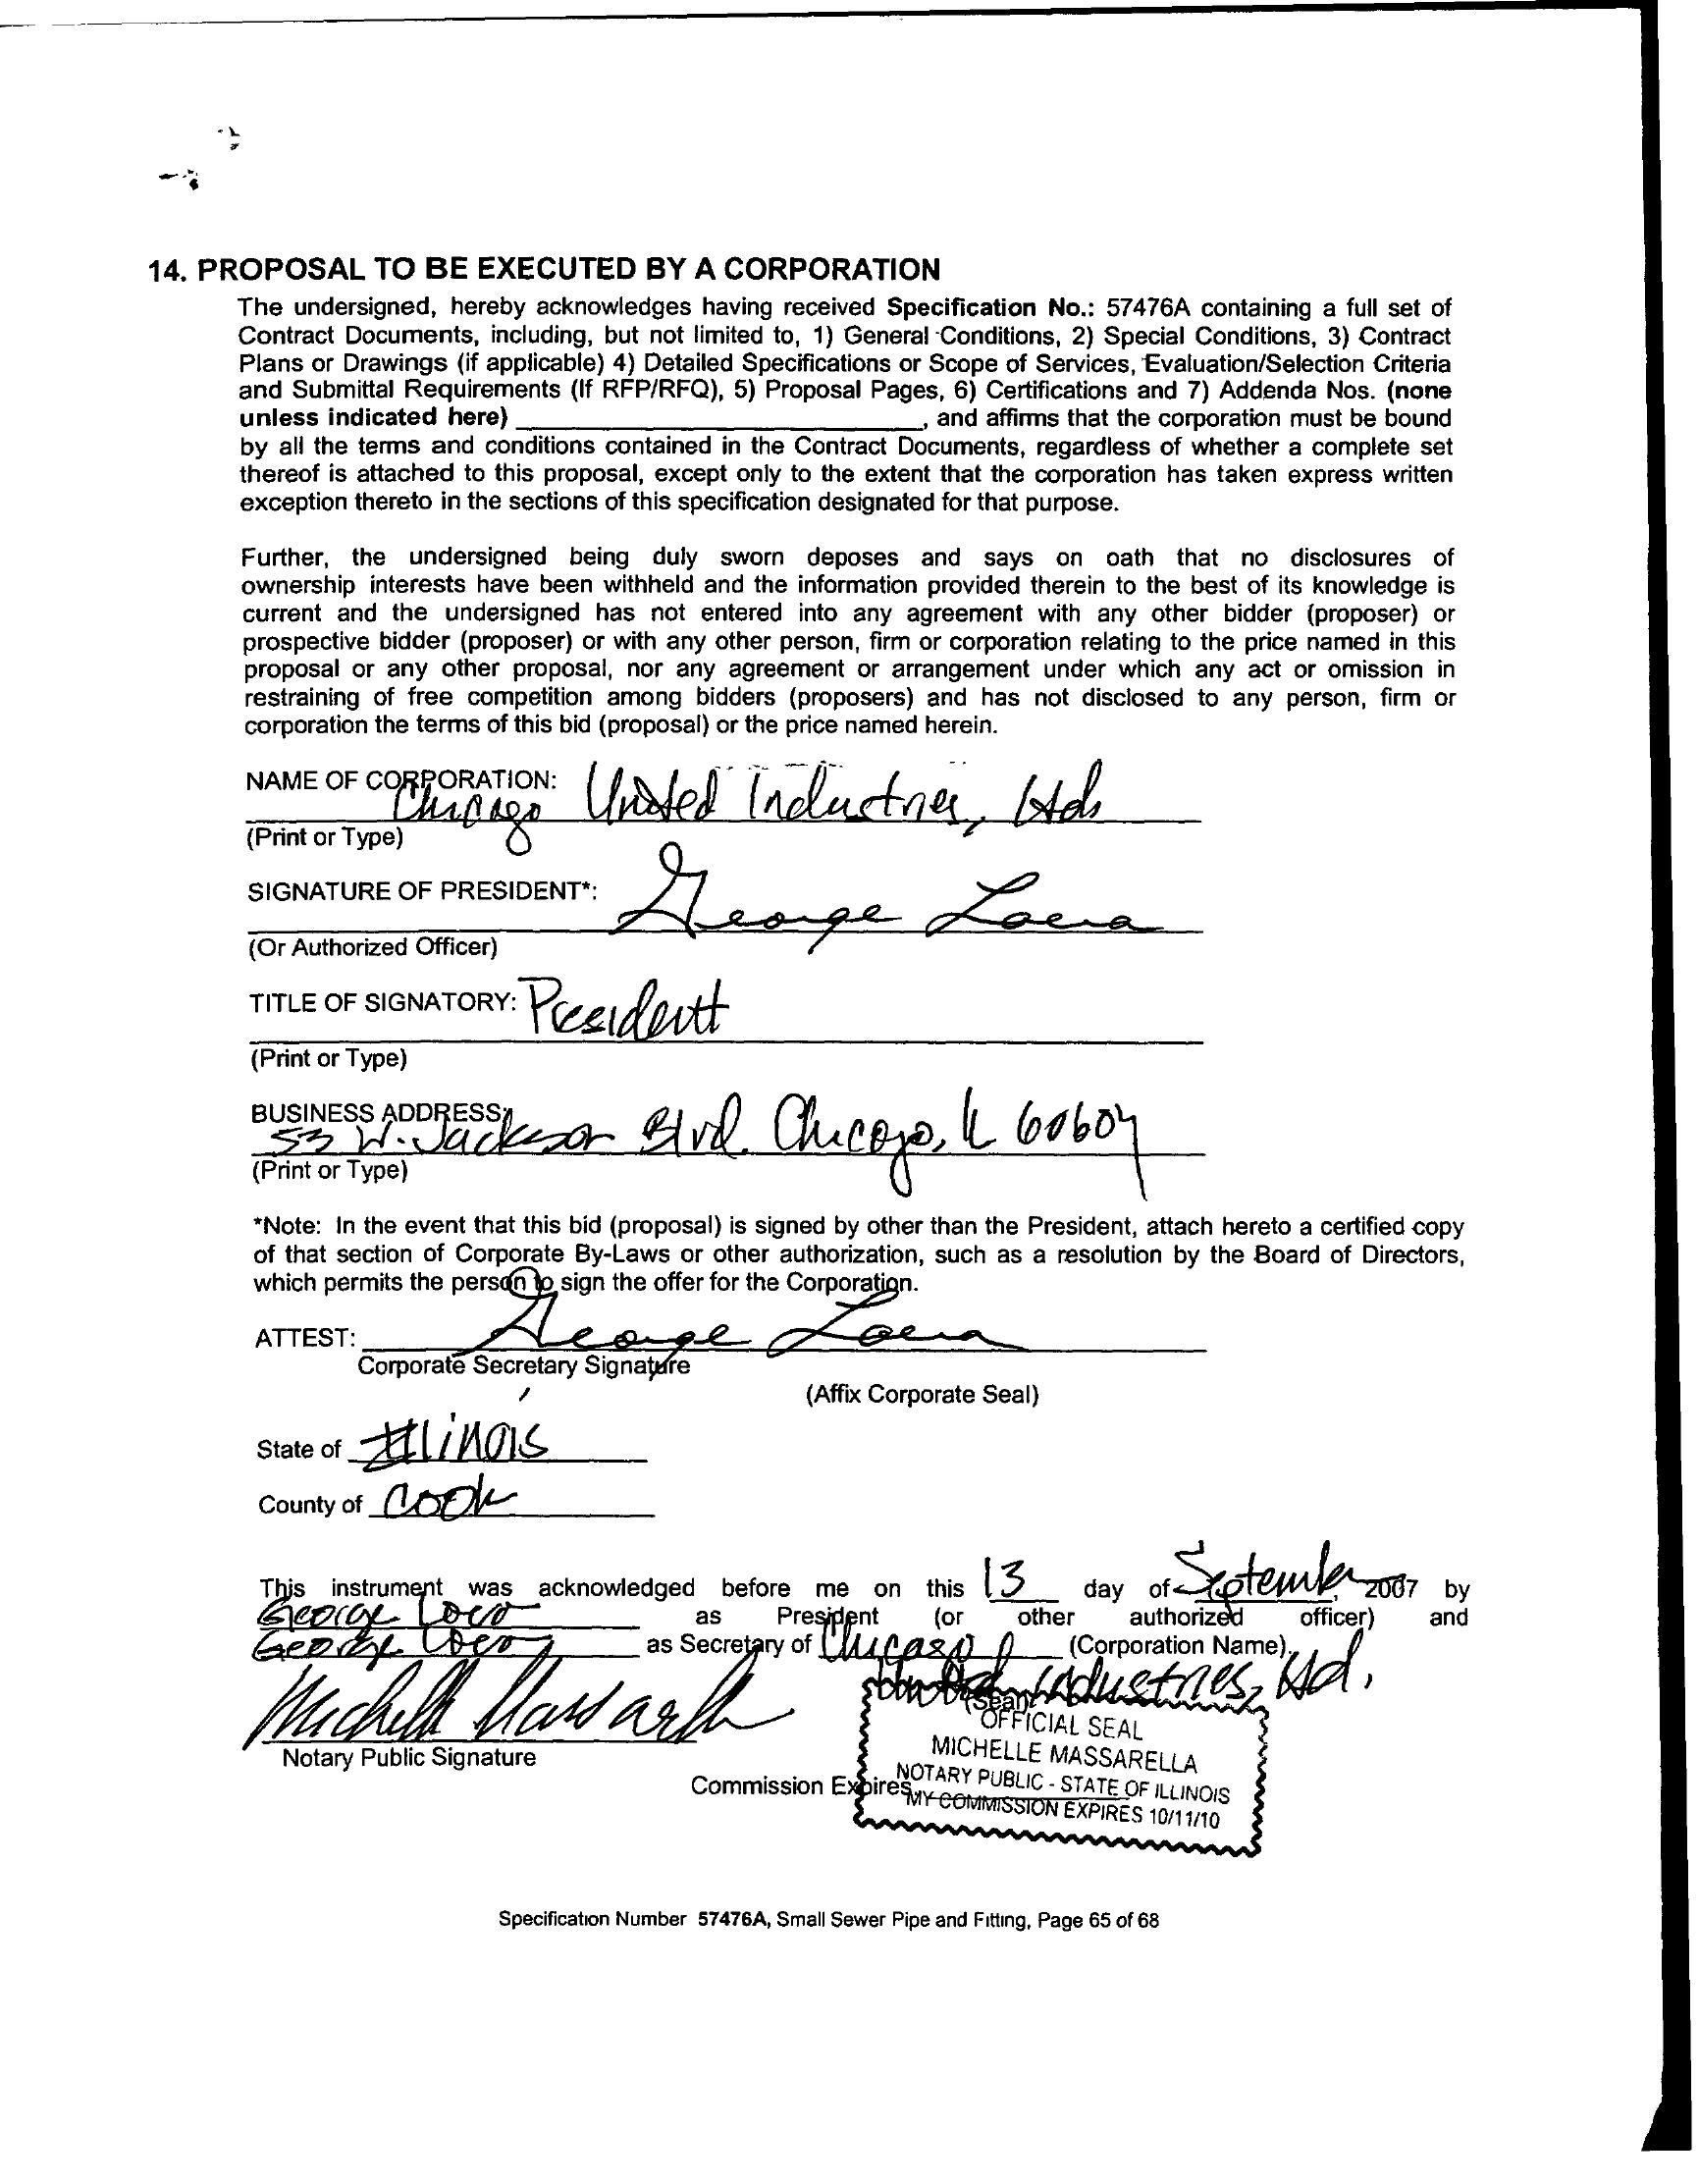 14. PROPOSAL TO BE EXECUTED BY A CORPORATION
The undersigned, hereby acknowledges having received Specification No.: 57476A containing a full set of
Contract Documents, including, but not limited to, 1) General Conditions, 2) Special Conditions, 3) Contract
Plans or Drawings (if applicable) 4) Detailed Specifications or Scope of Services, Evaluation/Selection Criteria
and Submittal Requirements (If RFP/RFQ), 5) Proposal Pages, 6) Certifications and 7) Addenda Nos. (none
unless indicated here) ____________, and affirms that the corporation must be bound
by all the terms and conditions contained in the Contract Documents, regardless of whether a complete set
thereof is attached to this proposal, except only to the extent that the corporation has taken express written
exception thereto in the sections of this specification designated for that purpose.
Further, the undersigned being duly sworn deposes and says on oath that no disclosures of
ownership interests have been withheld and the information provided therein to the best of its knowledge is
current and the undersigned has not entered into any agreement with any other bidder (proposer) or
prospective bidder (proposer) or with any other person, firm or corporation relating to the price named in this
proposal or any other proposal, nor any agreement or arrangement under which any act or omission in
restraining of free competition among bidders (proposers) and has not disclosed to any person, firm or
corporation the terms of this bid (proposal) or the price named herein.
NAME OF CORPORATION:
Chicago United Industries, Ltd.
(Print or Type)
SIGNATURE OF PRESIDENT*: George Loera
(Or Authorized Officer)
TITLE OF SIGNATORY: President
(Print or Type)
BUSINESS ADDRESS:
53 W. Jackson Blvd. Chicago, IL 60604
(Print or Type)
*Note: In the event that this bid (proposal) is signed by other than the President, attach hereto a certified copy
of that section of Corporate By-Laws or other authorization, such as a resolution by the Board of Directors,
which permits the person to sign the offer for the Corporation.
ATTEST: George Loera
Corporate Secretary Signature
(Affix Corporate Seal)
State of Illinois
County of Cook
This instrument was acknowledged before me on this 13 day of September, 2007 by
George Loera as President (or other authorized officer) and
George Loera as Secretary of Chicago (Corporation Name).
United Industries, Ltd.
(Seal)
Michelle Massarella
Notary Public Signature
OFFICIAL SEAL
MICHELLE MASSARELLA
NOTARY PUBLIC - STATE OF ILLINOIS
MY COMMISSION EXPIRES 10/11/10
Commission Expires
Specification Number 57476A, Small Sewer Pipe and Fitting, Page 65 of 68